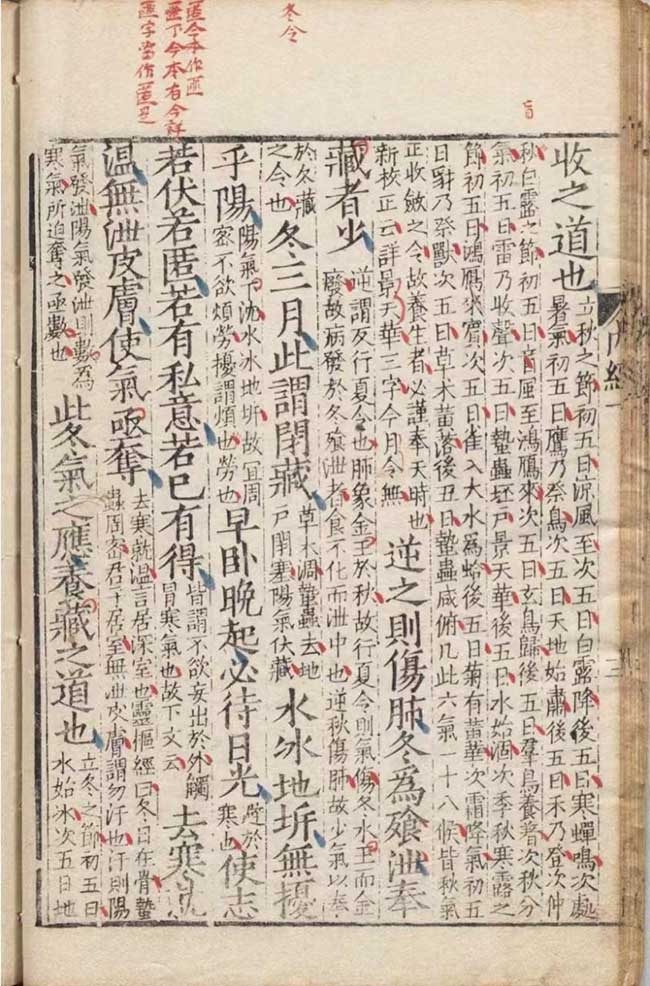 盲
冬令
收之道也
立秋之節初五日涼風至次五日白露降後五日寒蟬鳴次處
暑氣初五日鷹乃祭鳥次五日天地始肅後五日禾乃登次仲
秋白露之節初五日盲風至鴻鴈來次五日玄鳥歸後五日羣鳥養羞次秋分
氣初五日雷乃收聲次五日蟄蟲坯戶景天華後五日水始涸次季秋寒露之
節初五日鴻鴈來賓次五日雀入大水為蛤後五日菊有黃華次霜降氣初五
日豺乃祭獸次五日草木黃落後五日蟄蟲咸俯凡此六氣一十八候皆秋氣
正收斂之令故養生者必謹奉天時也
新校正云詳景天華三字今月令無
逆之則傷肺冬為飱泄奉
藏者少
逆謂反行夏令也肺象金王於秋故行夏令則氣傷冬水王而金
廢故病發於冬飱泄者食不化而泄出也逆秋傷肺故少氣以奉
於冬藏
之令也
冬三月此謂閉藏
草木凋蟄蟲去地
戶閉塞陽氣伏藏
水冰地坼無擾
乎陽
陽氣下沈水冰地坼故宜周
密不欲煩勞擾謂煩也勞也
早卧晚起必待日光
避於
寒也
使志
若伏若匿若有私意若已有得
皆謂不欲妄出於外觸
冒寒氣也故下文云
去寒就
温無泄皮膚使氣亟奪
去寒就温言居深室也靈樞經曰冬日在骨蟄
蟲周密君子居室無泄皮膚謂勿汗也汗則陽
氣發泄陽氣發泄則數為
寒氣所迫奪之亟數也
此冬氣之應養藏之道也
立冬之節初五日
水始冰次五日地